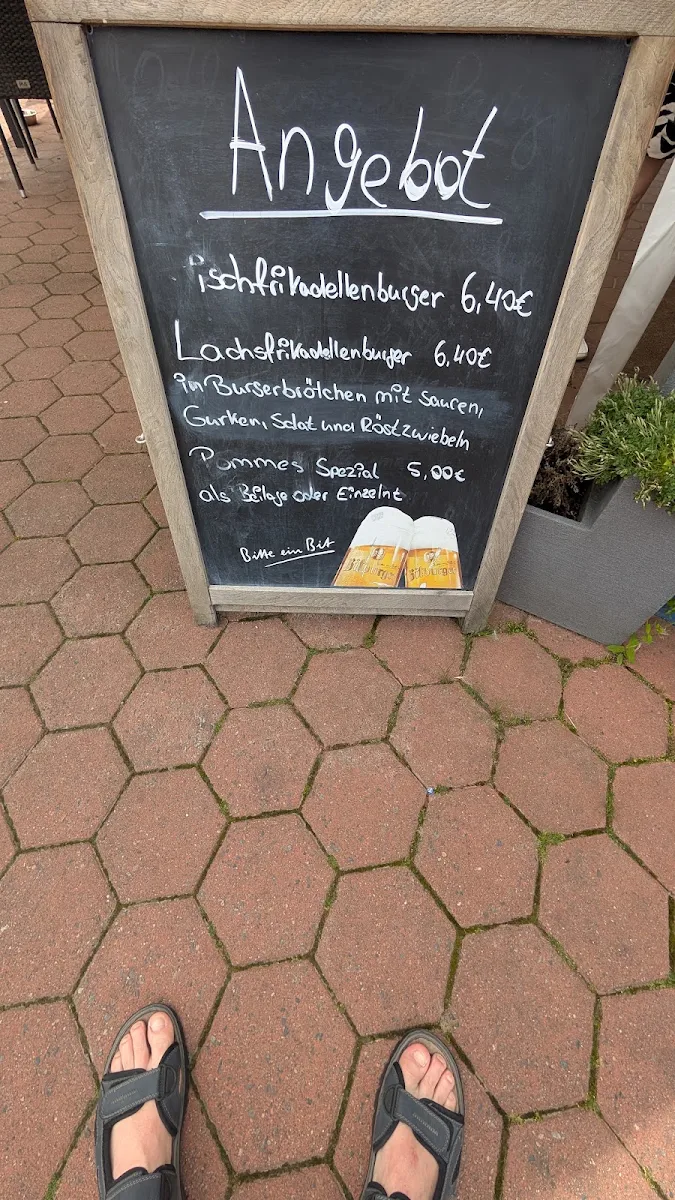 Angebot
ischfrikadellenburger 6,40€
Lachsfrikadellenburger 6,40€
in Burgerbrötchen mit Saucen,
Gurken, Salat und Röstzwiebeln
Pommes Spezial 5,00€
als Beilage oder Einzelnt
Bitte ein Bit
Bitburger Bitburger